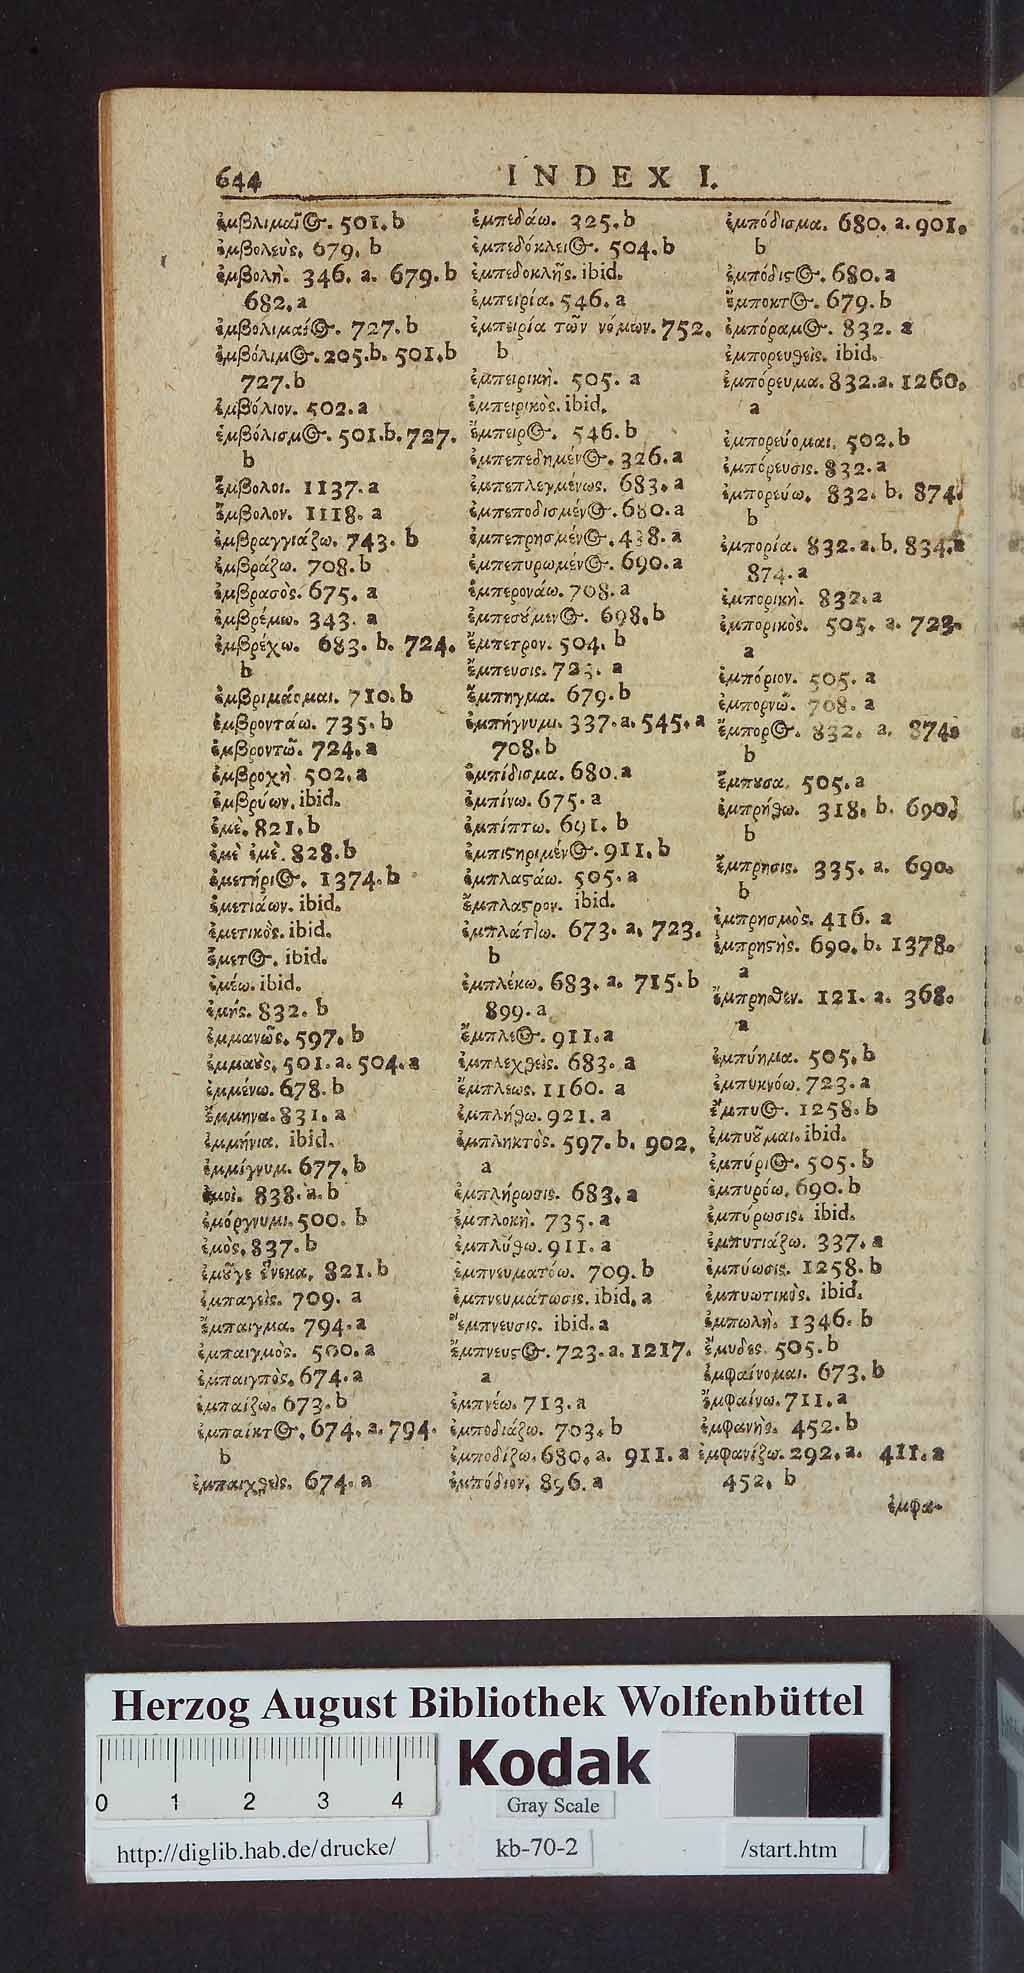 644 INDEX I.
ἐμβλιμαῖος. 501. b
ἐμβολεὺς. 679. b
ἐμβολὴ. 346. a. 679. b
682. a
ἐμβολιμαίος. 727. b
ἐμβόλιμος. 205. b. 501. b
727. b
ἐμβόλιον. 502. a
ἐμβόλισμος. 501. b. 727.
b
ἔμβολοι. 1137. a
ἔμβολον. 1118. a
ἐμβραγγιάζω. 743. b
ἐμβράζω. 708. b
ἐμβρασὸς. 675. a
ἐμβρέμω. 343. a
ἐμβρέχω. 683. b. 724.
b
ἐμβριμάομαι. 710. b
ἐμβροντάω. 735. b
ἐμβροντῶ. 724. a
ἐμβροχὴ 502. a
ἐμβρύων. ibid.
ἐμὲ. 821. b
ἐμὲ ἐμὲ. 828. b
ἐμετήριος. 1374. b
ἐμετιάων. ibid.
ἐμετικὸς. ibid.
ἔμετος. ibid.
ἐμέω. ibid.
ἐμής. 832. b
ἐμμανῶς. 597. b
ἐμμαοὺς. 501. a. 504. a
ἐμμένω. 678. b
ἔμμηνα. 831. a
ἐμμήνια. ibid.
ἐμμίγνυμ. 677. b
ἐμοὶ. 838. a. b
ἐμόργνυμι. 500. b
ἐμὸς. 837. b
ἐμοῦγε ἕνεκα. 821. b
ἐμπαγεὶς. 709. a
ἔμπαιγμα. 794. a
ἐμπαιγμὸς. 500. a
ἐμπαιγπὸς. 674. a
ἐμπαίζω. 673. b
ἐμπαίκτος. 674. a. 794.
b
ἐμπαιχθεὶς. 674. a
ἐμπεδάω. 325. b
ἐμπεδόκλειος. 504. b
ἐμπεδοκλῆς. ibid.
ἐμπειρία. 546. a
ἐμπειρία τῶν νόμων. 752.
b
ἐμπειρικὴ. 505. a
ἐμπειρικὸς. ibid.
ἔμπειρος. 546. b
ἐμπεπεδημένος. 326. a
ἐμπεπλεγμένως. 683. a
ἐμπεποδισμένος. 680. a
ἐμπεπρησμένος. 438. a
ἐμπεπυρωμένος. 690. a
ἐμπερονάω. 708. a
ἐμπεσούμενος. 698. b
ἔμπετρον. 504. b
ἔμπευσις. 723. a
ἔμπηγμα. 679. b
ἐμπήγνυμι. 337. a. 545. a
708. b
ἐμπίδισμα. 680. a
ἐμπίνω. 675. a
ἐμπίπτω. 691. b
ἐμπιστηριμένος. 911. b
ἐμπλαστάω. 505. a
ἔμπλαστρον. ibid.
ἐμπλάττω. 673. a. 723.
b
ἐμπλέκω. 683. a. 715. b
899. a
ἔμπλεος. 911. a
ἐμπλεχθεὶς. 683. a
ἔμπλεως. 1160. a
ἐμπλήθω. 921. a
ἐμπληκτὸς. 597. b. 902.
a
ἐμπλήρωσις. 683. a
ἐμπλοκὴ. 735. a
ἐμπλύθω. 911. a
ἐμπνευματόω. 709. b
ἐμπνευμάτωσις. ibid. a
ἔμπνευσις. ibid. a
ἔμπνευστος. 723. a. 1217.
a
ἐμπνέω. 713. a
ἐμποδιάζω. 703. b
ἐμποδίζω. 680. a. 911. a
ἐμπόδιον. 896. a
ἐμπόδισμα. 680. a. 901.
b
ἐμπόδιστος. 680. a
ἔμποκτος. 679. b
ἐμπόραμος. 832. a
ἐμπορευθεὶς. ibid.
ἐμπόρευμα. 832. a. 1260.
a
ἐμπορεύομαι. 502. b
ἐμπόρευσις. 832. a
ἐμπορεύω. 832. b. 874.
b
ἐμπορία. 832. a. b. 834. a
874. a
ἐμπορικὴ. 832. a
ἐμπορικὸς. 505. a. 723.
a
ἐμπόριον. 505. a
ἐμπορνῶ. 708. a
ἔμπορος. 832. a. 874.
b
ἔμπουσα. 505. a
ἐμπρήθω. 318. b. 690.
b
ἔμπρησις. 335. a. 690.
b
ἐμπρησμὸς. 416. a
ἐμπρηστὴς. 690. b. 1378.
a
ἔμπροσθεν. 121. a. 368.
a
ἐμπύημα. 505. b
ἐμπυκνόω. 723. a
ἔμπυος. 1258. b
ἐμπυοῦμαι. ibid.
ἐμπύριος. 505. b
ἐμπυρόω. 690. b
ἐμπύρωσις. ibid.
ἐμπυτιάζω. 337. a
ἐμπύωσις. 1258. b
ἐμπυωτικὸς. ibid.
ἐμπωλὴ. 1346. b
ἔμυδες. 505. b
ἐμφαίνομαι. 673. b
ἐμφαίνω. 711. a
ἐμφανὴς. 452. b
ἐμφανίζω. 292. a. 411. a
452. b
ἐμφα-
Herzog August Bibliothek Wolfenbüttel
Kodak
0 1 2 3 4
Gray Scale
http://diglib.hab.de/drucke/ kb-70-2 /start.htm